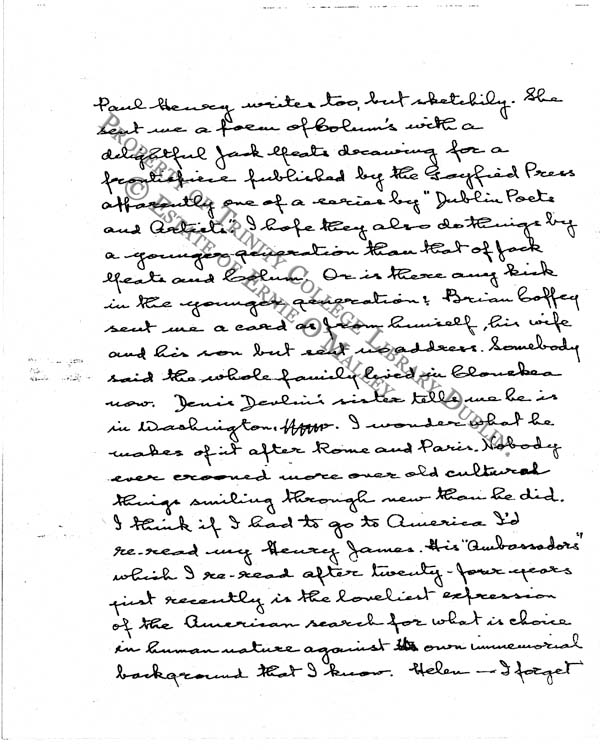 Paul Henry writes too, but sketchily. She
sent me a poem of Colum's with a
delightful Jack Yeats drawing for a
frontispiece published by the Gayfied Press
apparently one of a series by "Dublin Poets
and Artists". I hope they also do things by
a younger generation than that of Jack
Yeats and Colum. Or is there any kick
in the younger generation? Brian Coffey
sent me a card as from himself, his wife
and his son but sent no address. Somebody
said the whole family lived in Clonskea
now. Denis Devlin's sister tells me he is
in Washington. I wonder what he
makes of it after Rome and Paris. Nobody
ever crooned more over old cultural
things smiling through new than he did.
I think if I had to go to America I'd
re-read my Henry James. His "Ambassadors"
which I re-read after twenty-four years
just recently is the loveliest expression
of the American search for what is choice
in human nature against its own immemorial
background that I know. Helen — I forget
PROPERTY OF TRINITY COLLEGE LIBRARY DUBLIN.
© ESTATE OF ERNIE O'MALLEY